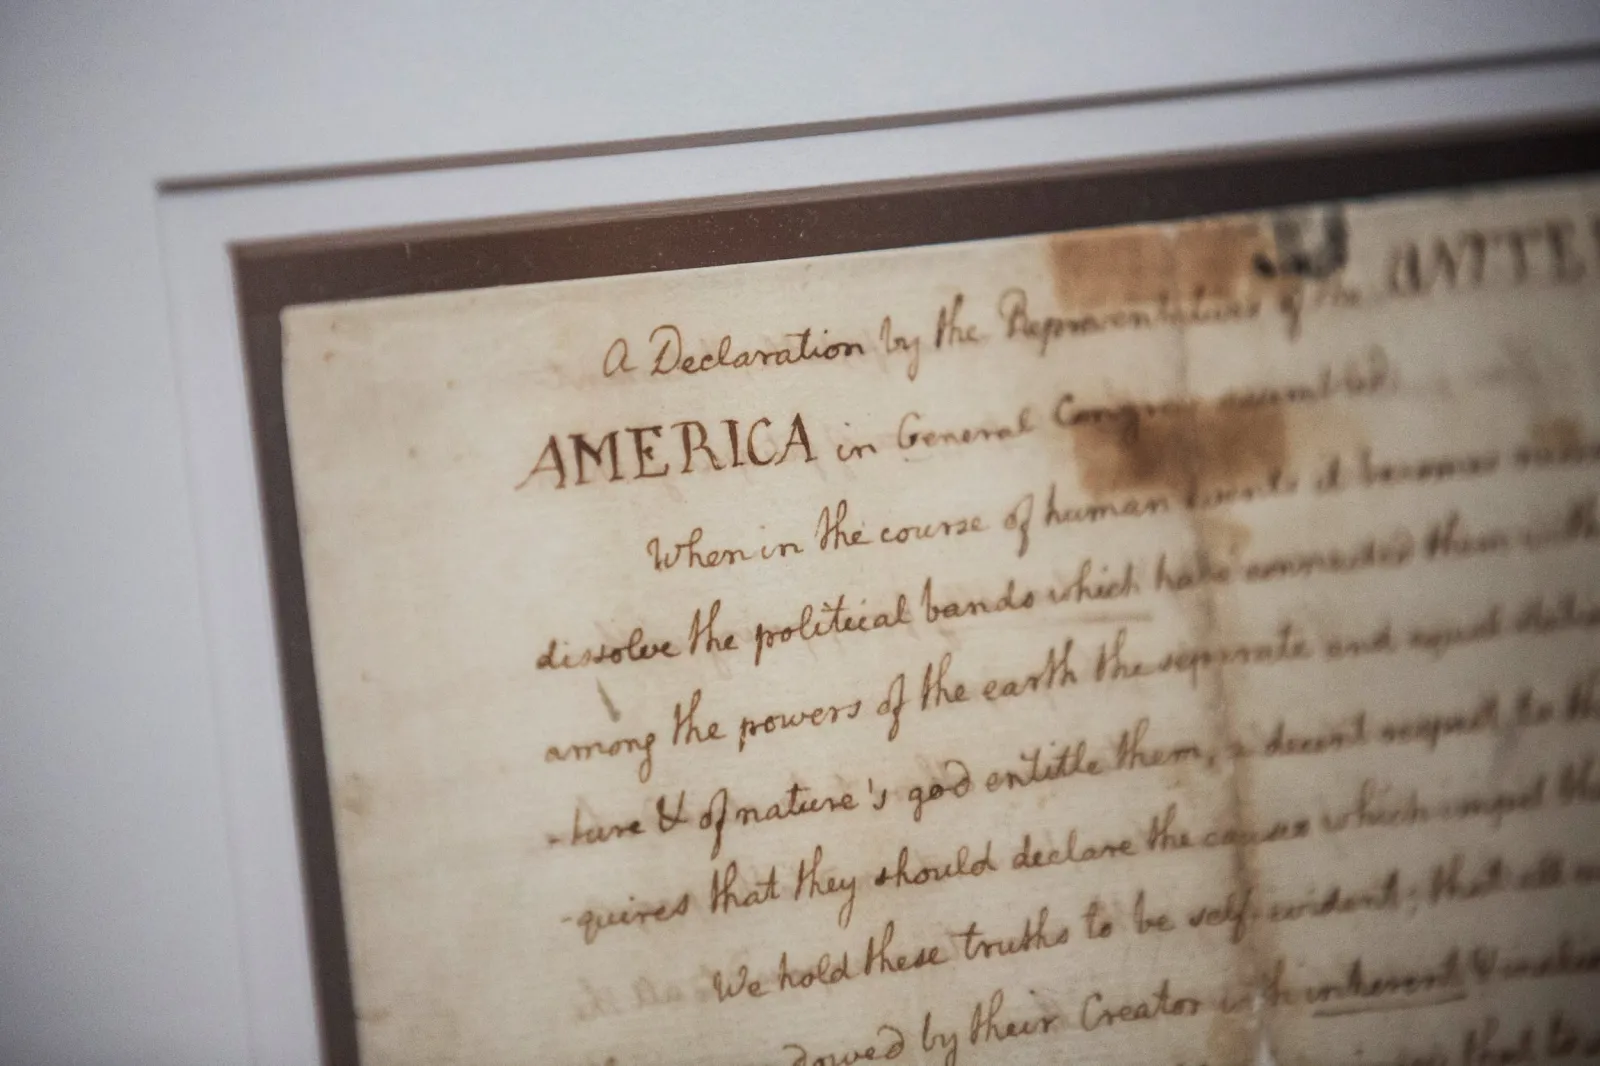 A Declaration by the Representatives of the UNITE
AMERICA in General Congress assembled.
When in the course of human events it becomes
dissolve the political bands which have connected them with
among the powers of the earth the separate and equal
-ture & of nature's god entitle them, a decent respect to the
-quires that they should declare the causes which impel the
We hold these truths to be self-evident; that all
dowed by their Creator with inherent &
that to